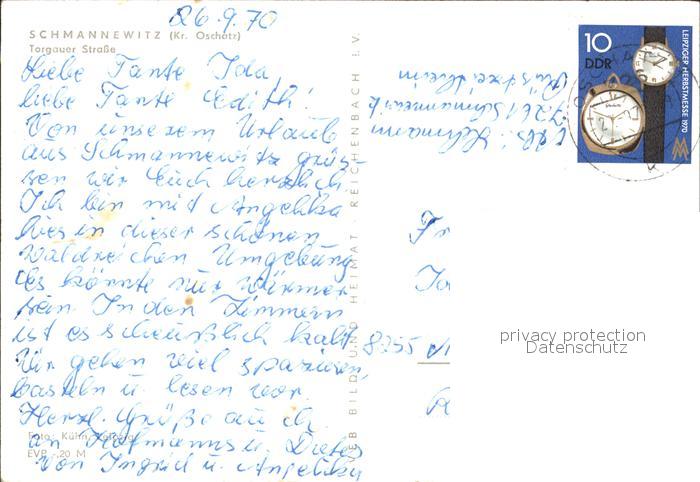 26.9.70
SCHMANNEWITZ (Kr. Oschatz)
Torgauer Straße
Liebe Tante Ida,
liebe Tante Edith!
Von unserem Urlaub
aus Schmannewitz grüs-
sen wir Euch herzlich.
Ich bin mit Angelika
hier in dieser schönen
waldreichen Umgebung
Es könnte nur wärmer
sein In den Zimmern
ist es scheußlich kalt.
Wir gehen viel spazieren,
basteln u. lesen vor.
Herzl. Grüße auch
an Hofmanns u. Dieter
von Ingrid u. Angelika
Foto: Kühn,
EVP -,20 M
VEB BILD UND HEIMAT REICHENBACH I. V.
Abs. Lehmann
7261 Schmannewitz
10
DDR
LEIPZIGER HERBSTMESSE 1970
MM
Fr
8255
privacy protection
Datenschutz